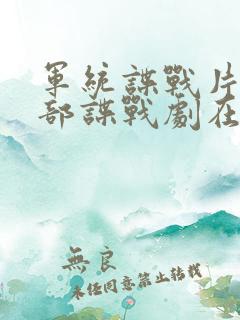 軍統諜戰片
部諜戰劇在
無良
未经同意禁止转载